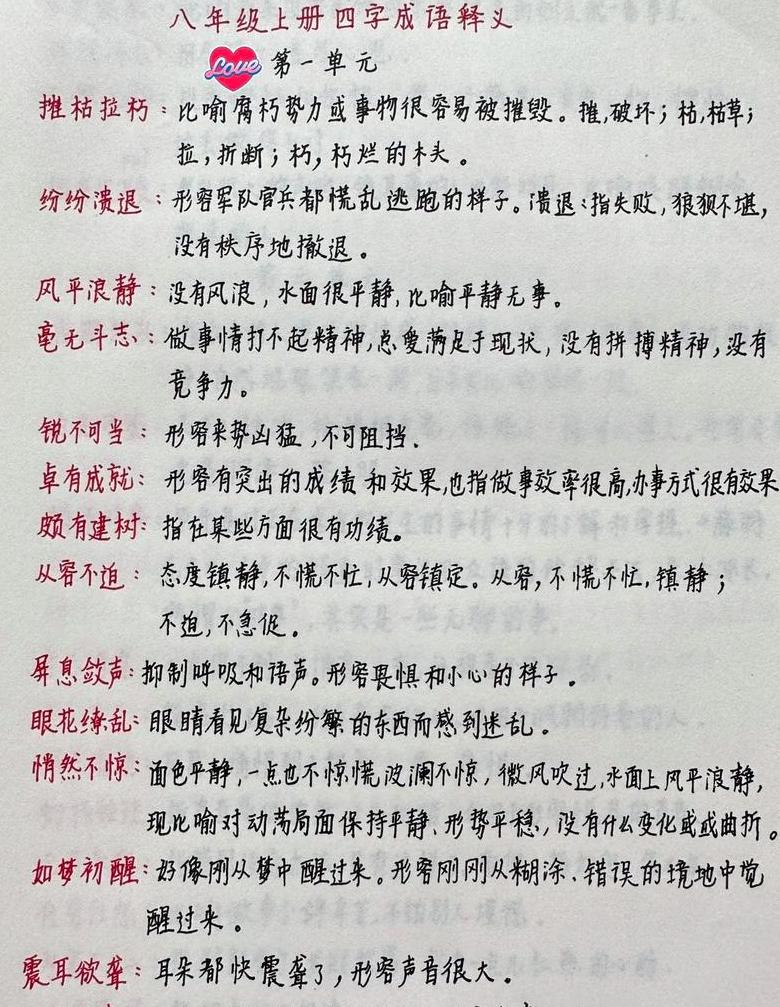 八年级上册四字成语释义
Love 第一单元
摧枯拉朽：比喻腐朽势力或事物很容易被摧毁。摧，破坏；枯，枯草；
拉，折断；朽，朽烂的木头。
纷纷溃退：形容军队官兵都慌乱逃跑的样子。溃退：指失败，狼狈不堪，
没有秩序地撤退。
风平浪静：没有风浪，水面很平静，比喻平静无事。
毫无斗志：做事情打不起精神，总爱满足于现状，没有拼搏精神，没有
竞争力。
锐不可当：形容来势凶猛，不可阻挡.
卓有成就：形容有突出的成绩和效果，也指做事效率很高，办事方式很有效果
颇有建树：指在某些方面很有功绩。
从容不迫：态度镇静，不慌不忙，从容镇定。从容，不慌不忙，镇静；
不迫，不急促。
屏息敛声：抑制呼吸和语声。形容畏惧和小心的样子。
眼花缭乱：眼睛看见复杂纷繁的东西而感到迷乱。
悄然不惊：面色平静，一点也不惊慌，波澜不惊，微风吹过，水面上风平浪静，
现比喻对动荡局面保持平静、形势平稳，没有什么变化或或曲折。
如梦初醒：好像刚从梦中醒过来。形容刚刚从糊涂、错误的境地中觉
醒过来。
震耳欲聋：耳朵都快震聋了，形容声音很大。